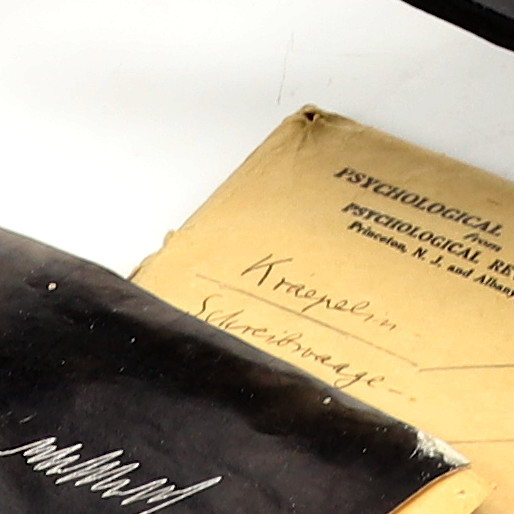 PSYCHOLOGICAL
from
PSYCHOLOGICAL RE
Princeton, N. J. and Albany
Kraepelin
Schreibwaage-